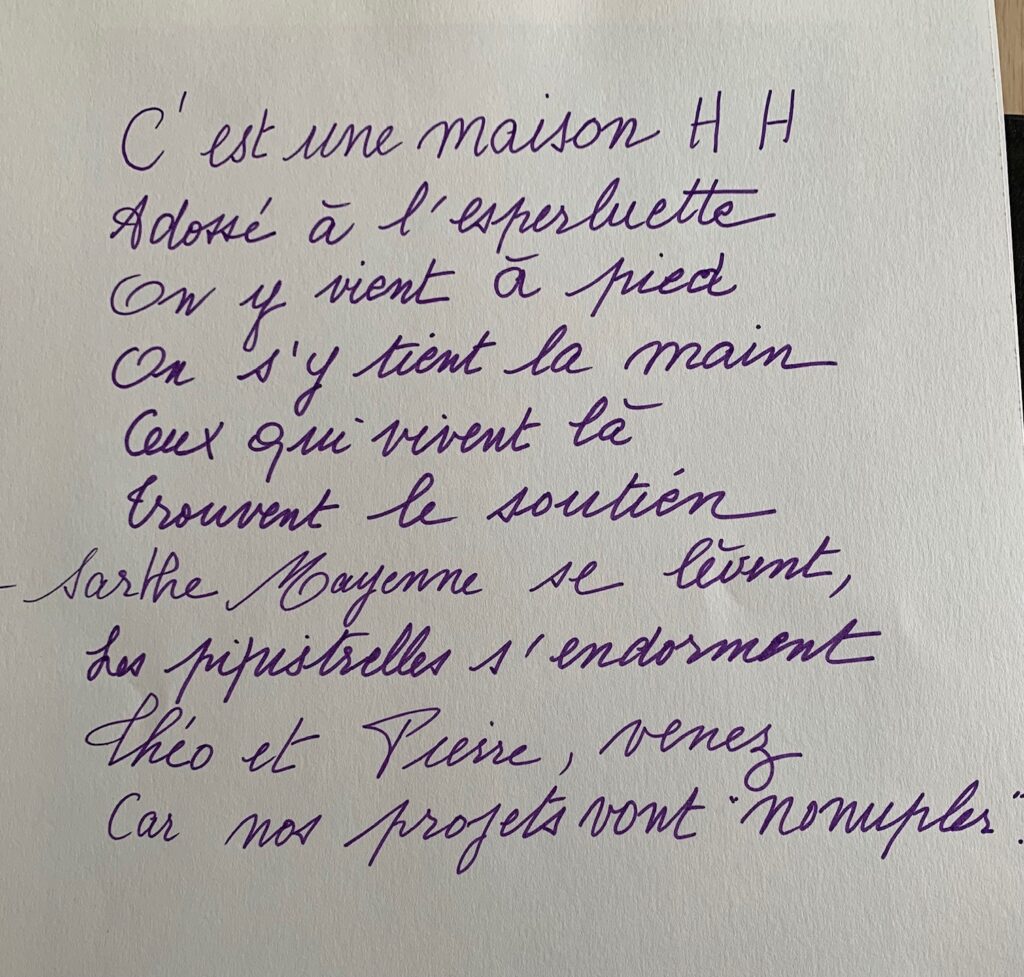 C'est une maison H H
Adossé à l'esperluette
On y vient à pied
On s'y tient la main
Ceux qui vivent là
trouvent le soutien
- Sarthe Mayenne se lèvent,
Les pipistrelles s'endorment
Théo et Pierre, venez
Car nos projets vont "nonupler".